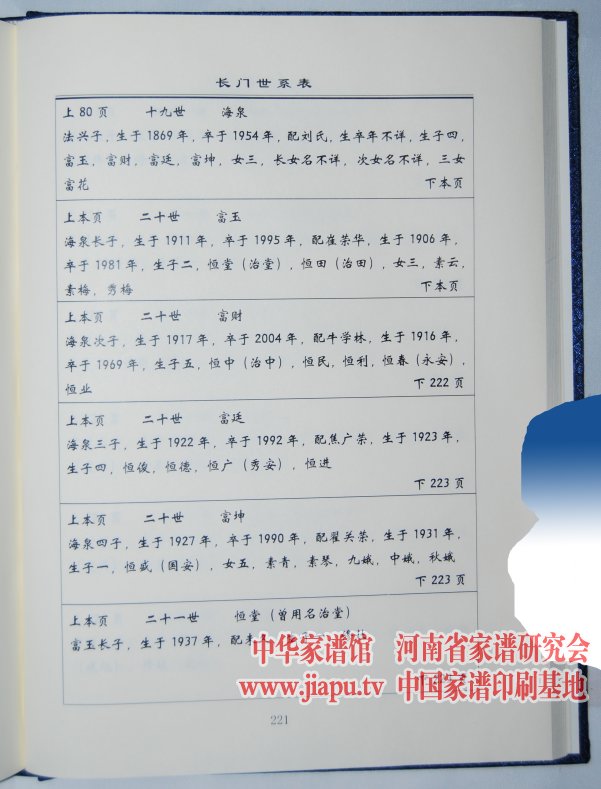 长门世系表
上80页 十九世 海泉
法兴子，生于1869年，卒于1954年，配刘氏，生卒年不详，生子四，
富玉，富财，富廷，富坤，女三，长女名不详，次女名不详，三女
富花 下本页
上本页 二十世 富玉
海泉长子，生于1911年，卒于1995年，配崔荣华，生于1906年，
卒于1981年，生子二，恒堂（治堂），恒田（治田），女三，素云，
素梅，秀梅 下本页
上本页 二十世 富财
海泉次子，生于1917年，卒于2004年，配牛学林，生于1916年，
卒于1969年，生子五，恒中（治中），恒民，恒利，恒春（永安），
恒业 下222页
上本页 二十世 富廷
海泉三子，生于1922年，卒于1992年，配焦广荣，生于1923年，
生子四，恒俊，恒德，恒广（秀安），恒进
下223页
上本页 二十世 富坤
海泉四子，生于1927年，卒于1990年，配翟关荣，生于1931年，
生子一，恒盛（国安），女五，素青，素琴，九娥，中娥，秋娥
下223页
上本页 二十一世 恒堂（曾用名治堂）
富玉长子，生于1937年，配
中华家谱馆 河南省家谱研究会
www.jiapu.tv 中国家谱印刷基地
221